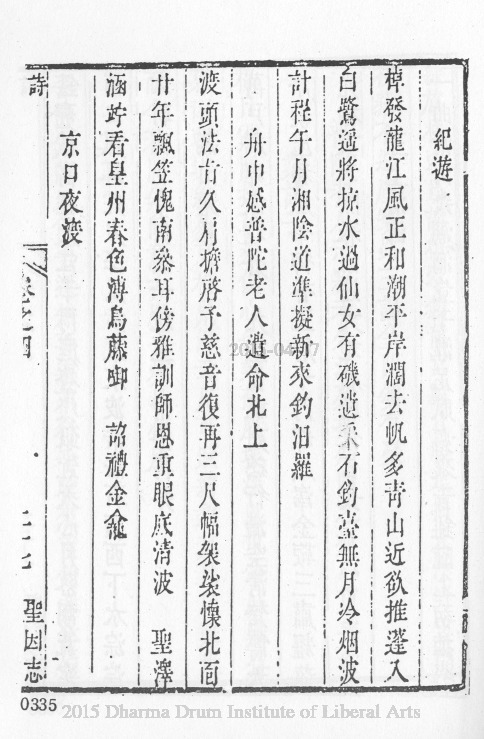 紀遊
棹發龍江風正和潮平岸濶去帆多青山近欲推蓬入
白鷺遥將掠水過仙女有磯遺采石釣臺無月冷烟波
計程午月湘陰道準擬新來釣汨羅
舟中感普陀老人遺命北上
渡頭法㫖久肩擔啓予慈音復再三尺幅袈裟懷北面
廿年飄笠愧南叅耳傍雅訓師恩重眼底清波 聖澤
涵竚看皇州春色溥烏藤啣 詔禮金龕
京口夜渡
詩
卷之四
二十七
聖因志
0335
2015 Dharma Drum Institute of Liberal Arts